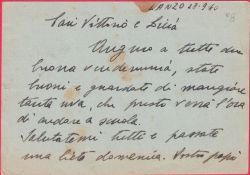 LANZO 29-9-40
Cari Vittorio e Licia
Auguro a tutti due
buona vendemmia, state
buoni e guardate di mangiare
tanta uva, che presto verrà l'ora
di andare a scuola.
Salutatemi tutti e passate
una lieta domenica. Vostro papà